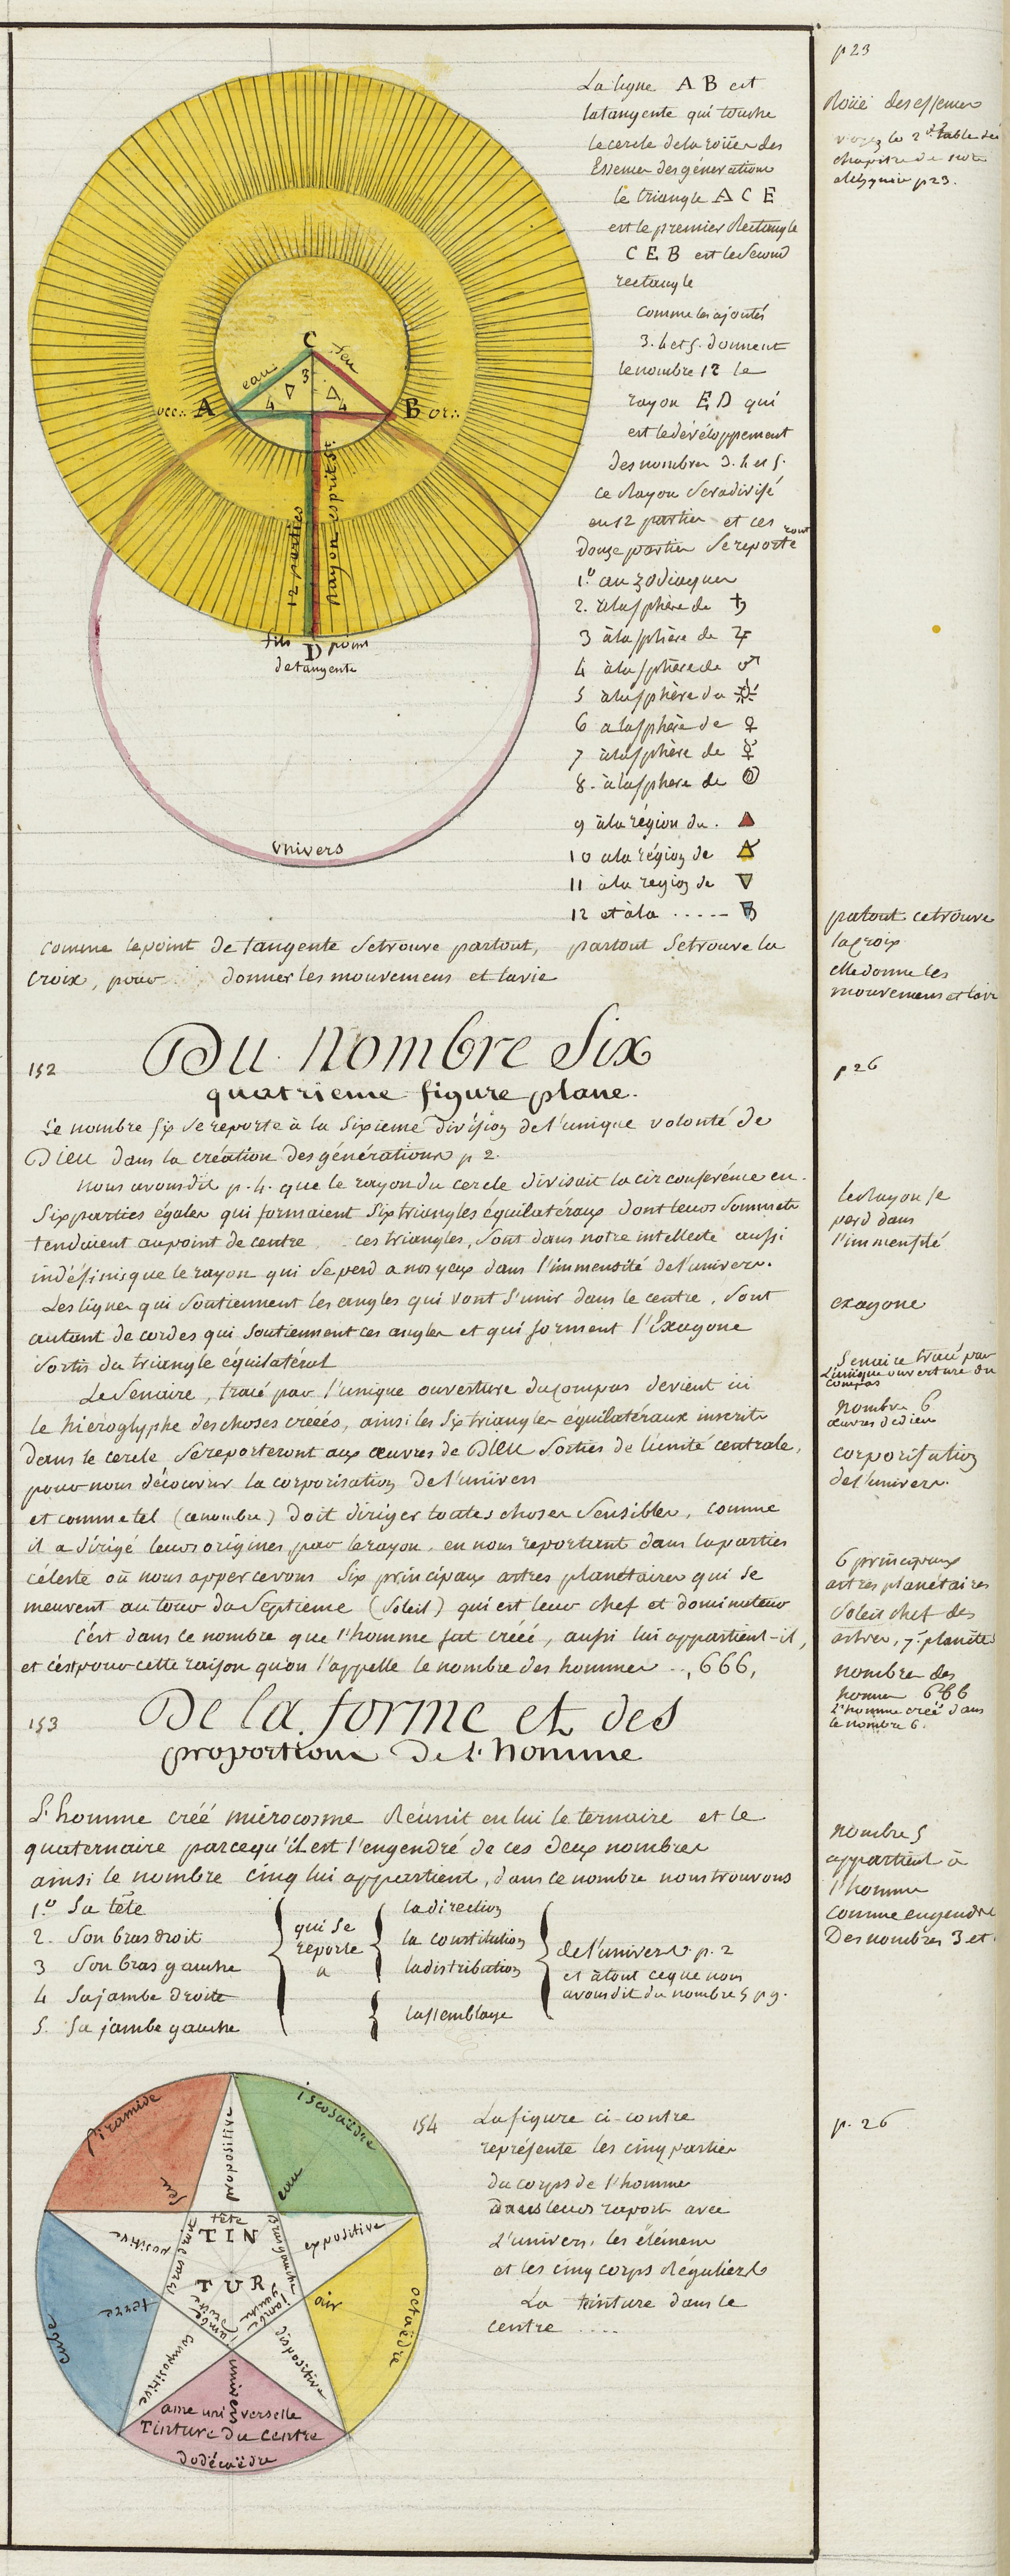 p 23
Roüe des essences
voyez la 2e table du
chapitre de
p 23.
La ligne A B est
la tangente qui touche
le cercle de la roüe des
Essences des générations
le triangle A C E
est le premier Rectangle
C E B est le Second
rectangle
comme les ajoutés
3. 4 et 5. donnent
le nombre 12 le
rayon E D qui
est le dévéloppement
des nombres 3. 4 et 5.
ce Rayon Sera divisé
en 12 parties et ces
douze parties Se reporteront
1.º au zodiaque
2. à la sphère de ♄
3 à la sphère de ♃
4 à la sphère de ♂
5 à la sphère du ☼
6 a la sphère de ♀
7 à la sphère de ☿
8. à la sphere de
9 à la région du . 🜂
10 a la région de 🜁
11 à la region de 🜄
12 et à la ...... 🜃
C
eau
feu
3
4
4
occ.
A
B
or.
12 parties
Rayon esprits
fils
D
point
de tangente
Vnivers
Comme le point de tangente Se trouve partout, partout Se trouve la
Croix, pour donner les mouvemens et la vie
partout ce trouve
la Croix
elle donne les
mouvemens et la vie
152
Du Nombre Six
quatrieme figure plane.
p 26
Le nombre six se reporte à la Sixieme division de l'unique volonté de
DIEU dans la création des générations p 2.
Nous avons dit p. 4. que le rayon du cercle divisait la circonférence en
Six parties égales qui formaient Six triangles équilatéraux dont leurs Sommets
tendaient au point de centre ces triangles, Sont dans notre intellecte aussi
indéfinis que le rayon qui Se perd a nos yeux dans l'immensité de l'univers.
Les lignes qui Soutiennent les angles qui vont S'unir dans le centre, Sont
autant de cordes qui Soutiennent ces angles et qui forment l'Exagone
Sortis du triangle équilatéral
Le Senaire, tracé par l'unique ouverture du compas devient ici
le hieroglyphe des choses créées, ainsi les Six triangles équilatéraux inscrits
Dans le cercle Se reporteront aux œuvres de DIEU Sorties de l'unité centrale,
pour nous découvrir la corporisation de l'univers
et comme tel (ce nombre) Doit diriger toutes choses Sensibles, comme
il a dirigé leurs origines par le rayon, en nous reportant dans la parties
céleste où nous appercevons Six principaux astres planétaires qui Se
meuvent autour du Septieme (Soleil) qui est leur chef et dominateur
C'est dans ce nombre que l'homme fut créé, aussi lui appartient-il,
et c'est pour cette raison qu'on l'appelle le nombre des hommes .., 666,
le Rayon se
perd dans
l'immensité
exagone
Senaire tracé par
L'unique ouverture du
compas
Nombre 6
œuvres de dieu
corporisation
de l'univers.
6 principaux
astres planétaires
Soleil chef des
astres, 7e planète
nombre des
hommes 666
l'homme créé dans
le nombre 6.
153
De la forme et des
proportions De l'homme
L'homme créé microcosme Réunit en lui le ternaire et le
quaternaire parcequ'il est l'engendré de ces deux nombres
ainsi le nombre cinq lui appartient, dans ce nombre nous trouvons
1.º Sa tête
2. Son bras droit
3 Son bras gauche
4 Sa jambe droite
5. Sa jambe gauche
qui Se
reporte
a
la direction
la constitution
la distribution
l'assemblage
de l'univers p. 2
et à tout ce que nous
avons dit du nombre 5 p 9.
nombre 5
appartient à
l'homme
comme engendré
Des nombres 3 et
154
La figure ci-contre
représente les cinq parties
du corps de l'homme
Dans leurs raport avec
L'univers, les élémens
et les cinq corps Réguliers
La teinture dans le
centre ....
p. 26
Piramide
feu
propositive
iscosaëdre
eau
tête
TIN
TUR
positive
bras droit
bras gauche
expositive
cube
terre
jambe droite
jambe gauche
air
octaëdre
compositive
dispositive
univers
ame universelle
Tinture du Centre
dodécaëdre